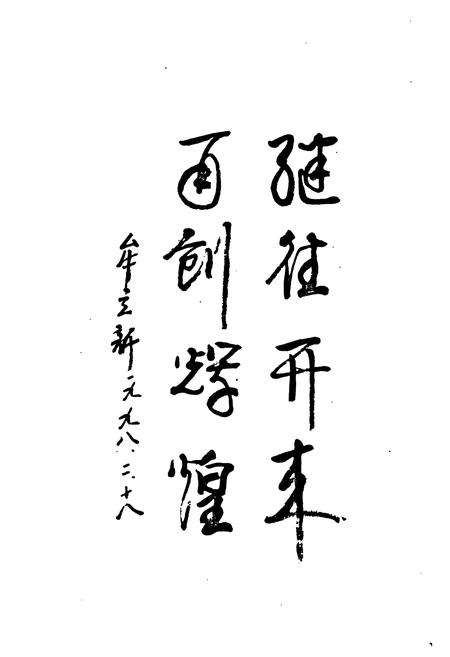 继往开来
再创辉煌
牟立新 一九九八.二.十八